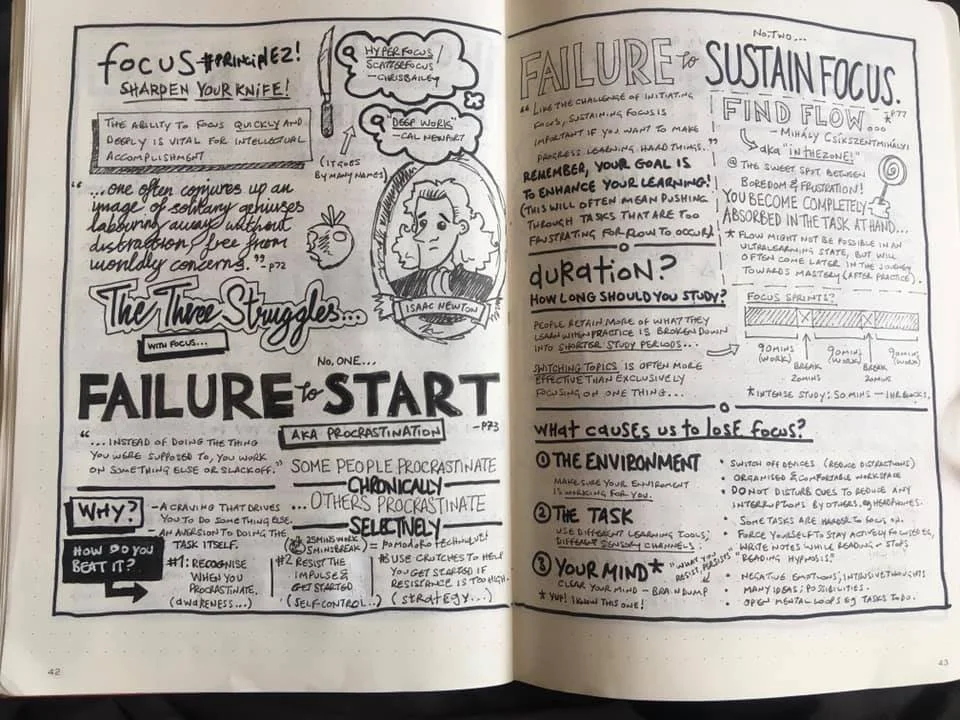 focus #PRINCIPLE2!
SHARPEN YOUR KNIFE!
THE ABILITY TO FOCUS QUICKLY AND
DEEPLY IS VITAL FOR INTELLECTUAL
ACCOMPLISHMENT
HYPERFOCUS /
SCATTERFOCUS
- CHRIS BAILEY
"DEEP WORK"
- CAL NEWPORT
(IT GOES
BY MANY NAMES)
"...one often conjures up an
image of solitary geniuses
labouring away without
distraction, free from
worldly concerns." - p72
ISAAC NEWTON
The Three Struggles...
WITH FOCUS...
NO, ONE...
FAILURE to START
AKA PROCRASTINATION
- P73
"... INSTEAD OF DOING THE THING
YOU WERE SUPPOSED TO, YOU WORK
ON SOMETHING ELSE OR SLACK OFF."
SOME PEOPLE PROCRASTINATE
CHRONICALLY
...OTHERS PROCRASTINATE
SELECTIVELY
WHY?
- A CRAVING THAT DRIVES
YOU TO DO SOMETHING ELSE.
- AN AVERSION TO DOING THE
TASK ITSELF.
25MINS WORK
5MINS BREAK
= POMODORO TECHNIQUE!
HOW DO YOU
BEAT IT?
#1: RECOGNISE
WHEN YOU
PROCRASTINATE.
(AWARENESS...)
#2 RESIST THE
IMPULSE &
GET STARTED
(SELF-CONTROL...)
#3 USE CRUTCHES TO HELP
YOU GET STARTED IF
RESISTANCE IS TOO HIGH.
(STRATEGY...)
42
NO. TWO...
FAILURE to SUSTAIN FOCUS.
"LIKE THE CHALLENGE OF INITIATING
FOCUS, SUSTAINING FOCUS IS
IMPORTANT IF YOU WANT TO MAKE
PROGRESS LEARNING HARD THINGS."
REMEMBER, YOUR GOAL IS
TO ENHANCE YOUR LEARNING!
(THIS WILL OFTEN MEAN PUSHING
THROUGH TASKS THAT ARE TOO
FRUSTRATING FOR FLOW TO OCCUR)
FIND FLOW...
* P77
- MIHÁLY CSÍKSZENTMIHÁLYI
aka "IN THE ZONE!"
@ THE SWEET SPOT BETWEEN
BOREDOM & FRUSTRATION!
YOU BECOME COMPLETELY
ABSORBED IN THE TASK AT HAND...
* FLOW MIGHT NOT BE POSSIBLE IN AN
ULTRALEARNING STATE, BUT WILL
OFTEN COME LATER IN THE JOURNEY
TOWARDS MASTERY (AFTER PRACTICE).
DURATION?
HOW LONG SHOULD YOU STUDY?
PEOPLE RETAIN MORE OF WHAT THEY
LEARN WHEN PRACTICE IS BROKEN DOWN
INTO SHORTER STUDY PERIODS...
SWITCHING TOPICS IS OFTEN MORE
EFFECTIVE THAN EXCLUSIVELY
FOCUSING ON ONE THING...
FOCUS SPRINTS?
90MINS
(WORK)
BREAK
20MINS
90MINS
(WORK)
BREAK
20MINS
90MINS
(WORK)
* INTENSE STUDY: 50MINS - 1HR BLOCKS.
WHAT CAUSES US TO LOSE FOCUS?
① THE ENVIRONMENT
MAKE SURE YOUR ENVIROMENT
IS WORKING FOR YOU.
• SWITCH OFF DEVICES (REDUCE DISTRACTIONS)
• ORGANISED & COMFORTABLE WORKSPACE
• DO NOT DISTURB CUES TO REDUCE ANY
INTERRUPTIONS BY OTHERS. EG HEADPHONES.
② THE TASK
USE DIFFERENT LEARNING TOOLS;
DIFFERENT SENSORY CHANNELS.
• SOME TASKS ARE HARDER TO FOCUS ON.
• FORCE YOURSELF TO STAY ACTIVELY FOCUSED EG,
WRITE NOTES WHILE READING - STOPS
"READING HYPNOSIS."
③ YOUR MIND*
"WHAT YOU
RESIST, PERSISTS"
CLEAR YOUR MIND - BRAINDUMP
* YUP! I KNOW THIS ONE!
• NEGATIVE EMOTIONS; INTRUSIVE THOUGHTS
• MANY IDEAS; POSSIBILITIES.
• OPEN MENTAL LOOPS EG TASKS TO DO.
43